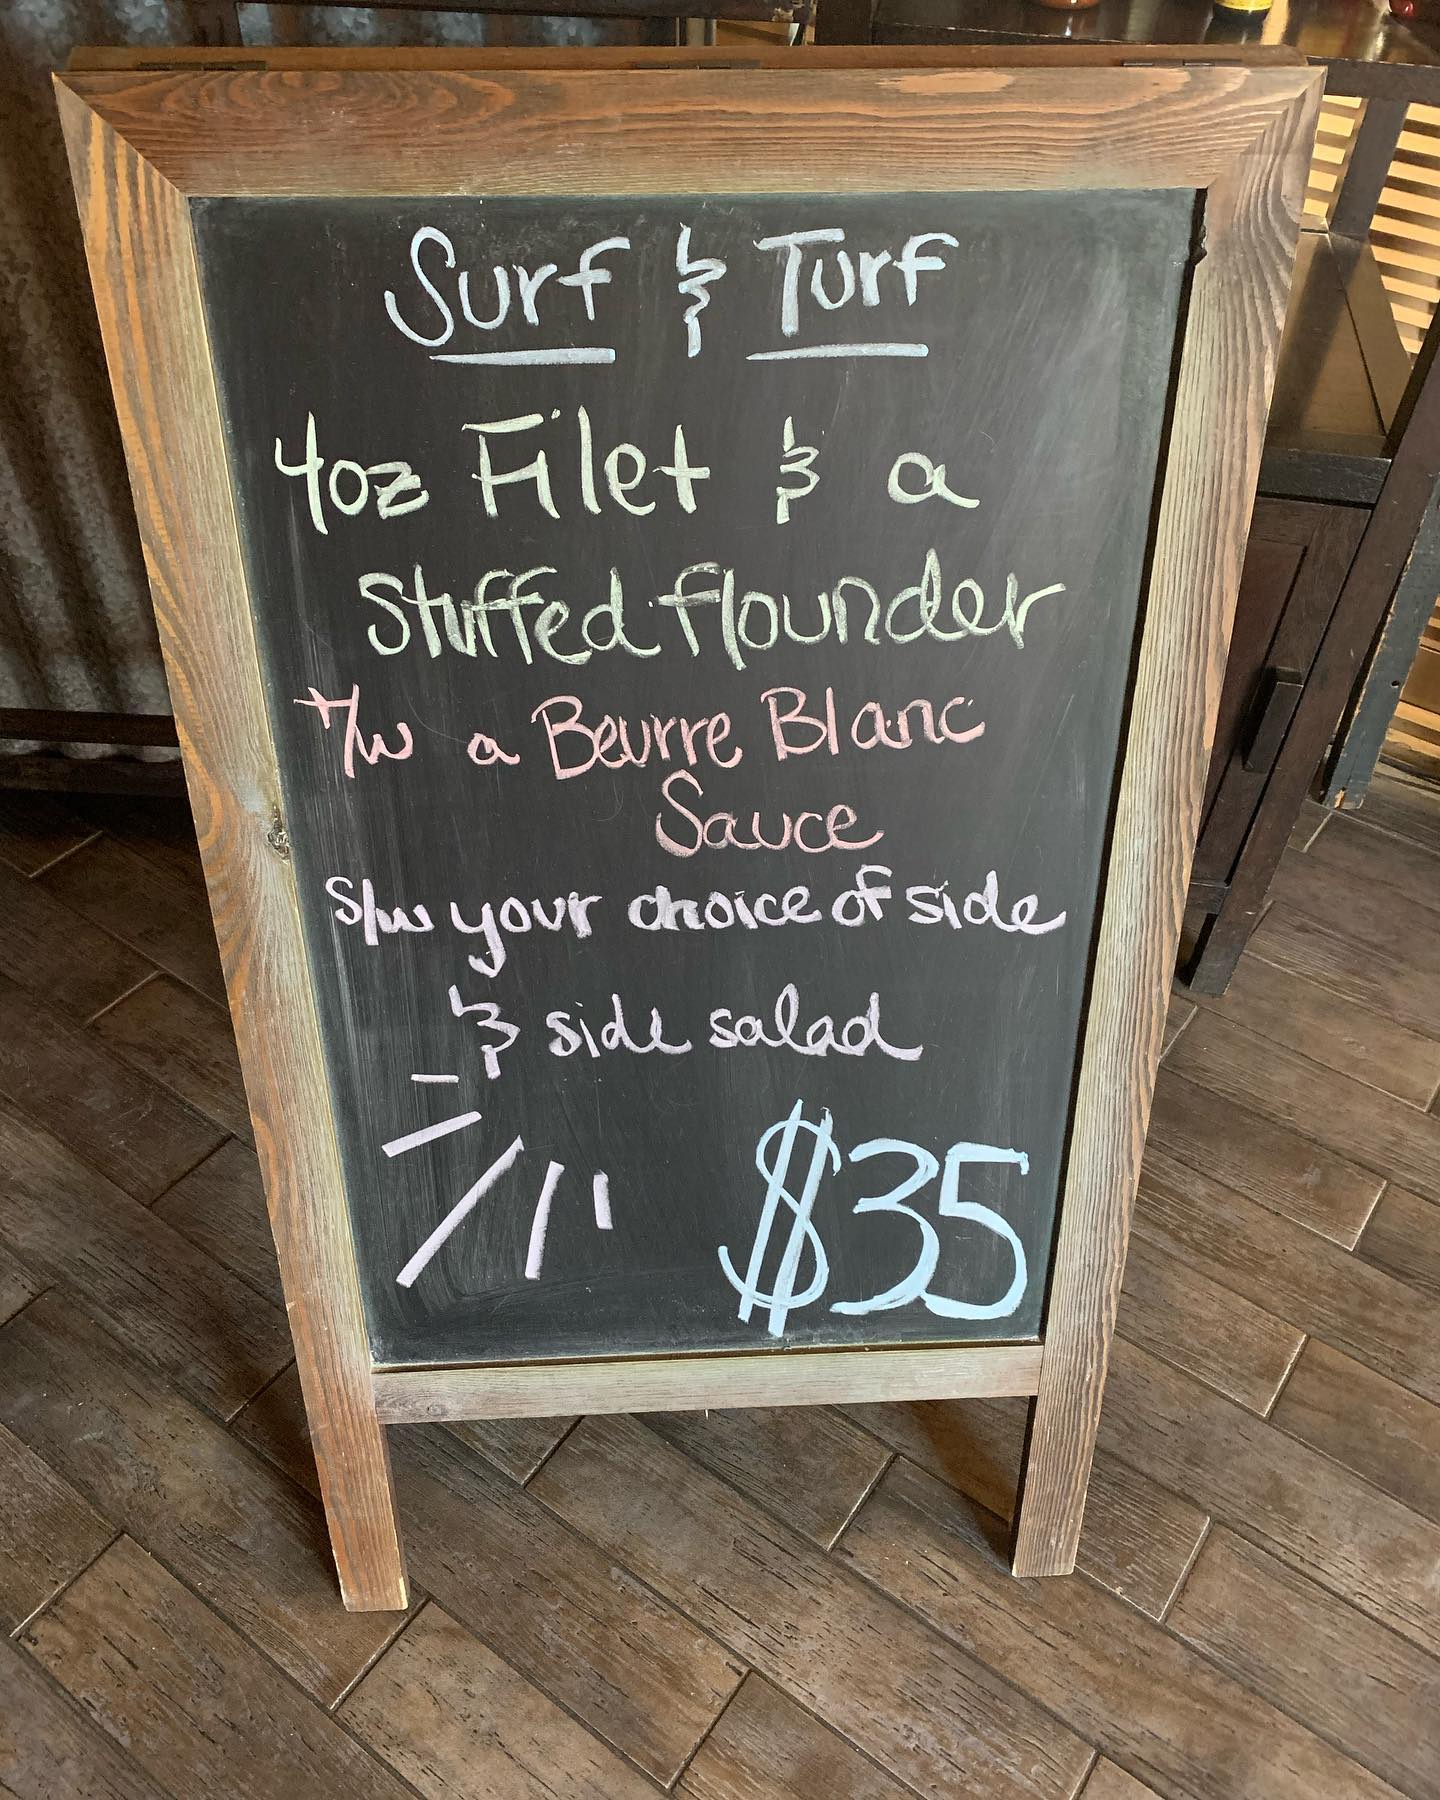 Surf & Turf
4oz Filet & a
Stuffed flounder
T/w a Beurre Blanc
Sauce
S/w your choice of side
& side salad
$35